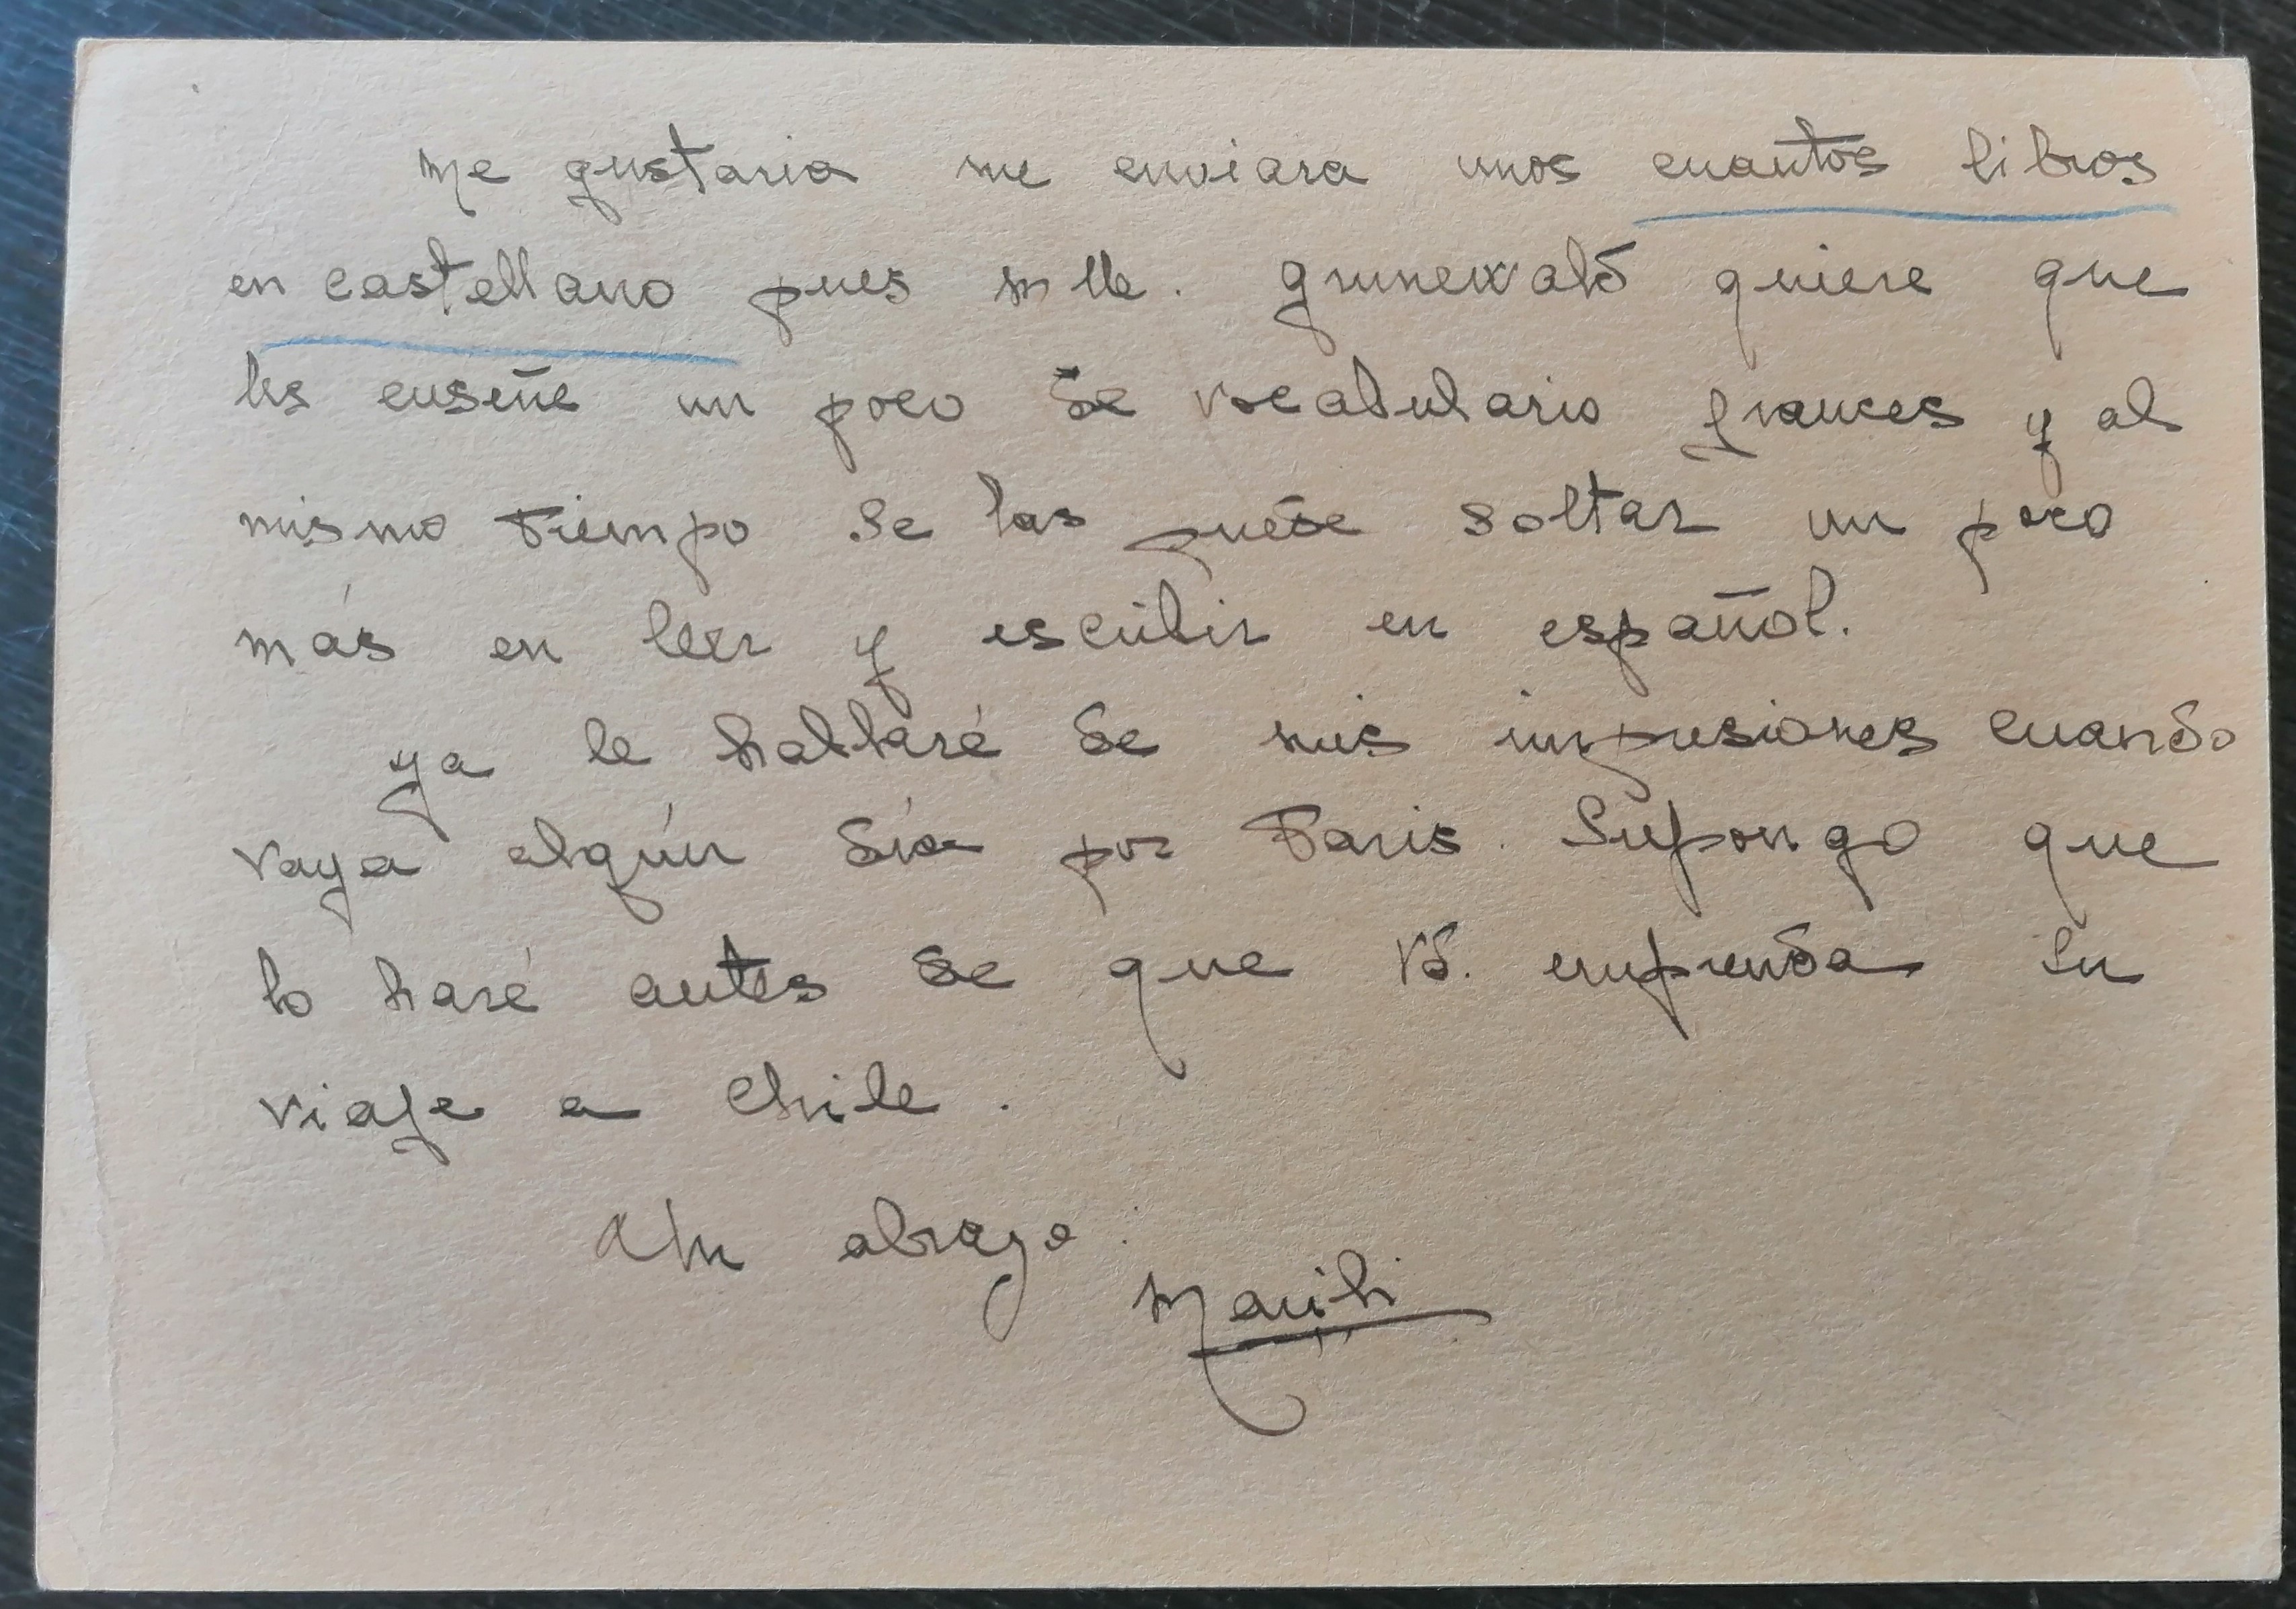 Me gustaria me enviara unos cuantos libros
en castellano pues Mlle. Grunewald quiere que
les enseñe un poco de vocabulario frances y al
mismo tiempo se las puede soltar un poco
más en leer y escribir en español.
Ya le hablaré de mis impresiones cuando
vaya algún día por Paris. Supongo que
lo haré antes de que Vd. emprenda su
viaje a Chile.
Un abrazo: